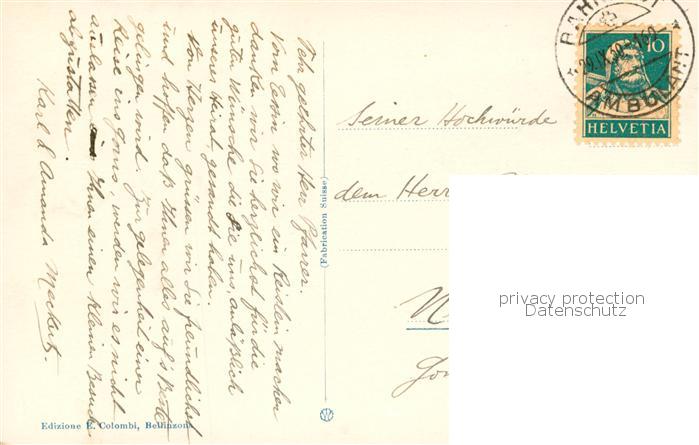 Sehr geehrter Herr Pfarrer.
Vom Tessin wo wir ein Reislein machen
danken wir Sie herzlichst für die
guten Wünsche die Sie uns, anläßlich
unserer Heirat, gesandt haben.
Von Herzen grüssen wir Sie freundlichst
und hoffen daß Ihnen alles auf's Beste
gelingen wird. Zur gelegenheit einer
Reise ins werden wir es nicht
Ihnen einen kleinen Besuch
abzustatten.
Karl & Amanda
Edizione E. Colombi, Bellinzona
(Fabrication Suisse)
BAHNPOST
29.IX.
AMBULANT
10
HELVETIA
Seiner Hochwürde
dem Herr
privacy protection
Datenschutz